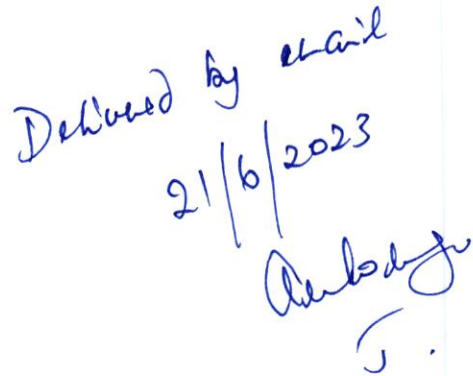 Delivered by email
21/6/2023
J.